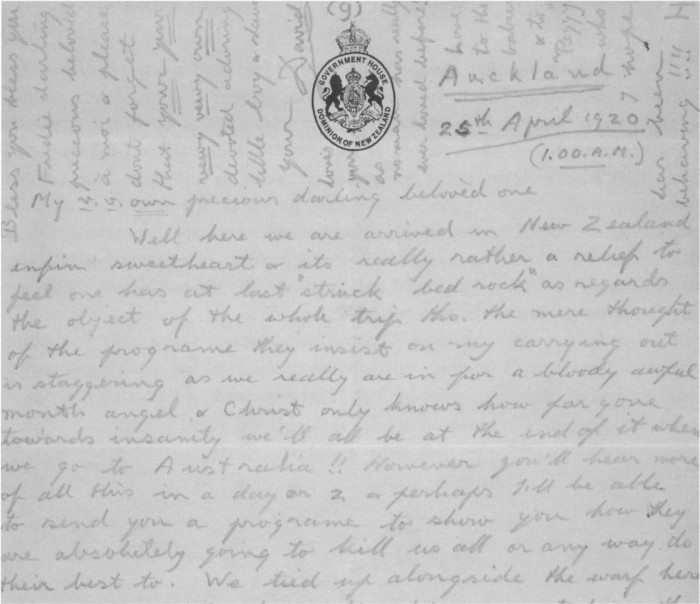 (9)
GOVERNMENT HOUSE
DOMINION OF NEW ZEALAND
Auckland
25th April 1920
(1.00.A.M.)
My v. v. own precious darling beloved one
Well here we are arrived in New Zealand
enfin sweetheart & its really rather a relief to
feel one has at last "struck bed rock" as regards
the object of the whole trip tho. the mere thought
of the programe they insist on my carrying out
is staggering as we really are in for a bloody awful
month angel & Christ only knows how far gone
towards insanity we'll all be at the end of it when
we go to Australia!! However you'll hear more
of all this in a day or 2 & perhaps I'll be able
to send you a programe to show you how they
are absolutely going to kill us all or any way do
their best to. We tied up alongside the warf here
Bless you bless you
Fredie darling
precious beloved
à moi & please
dont forget
that your your
very very own
devoted adoring
little boy &
your David
love
as
no man has really
ever loved before
love
to the
babies
& to
"Peggy"
who
I hope
has been
behaving!!!